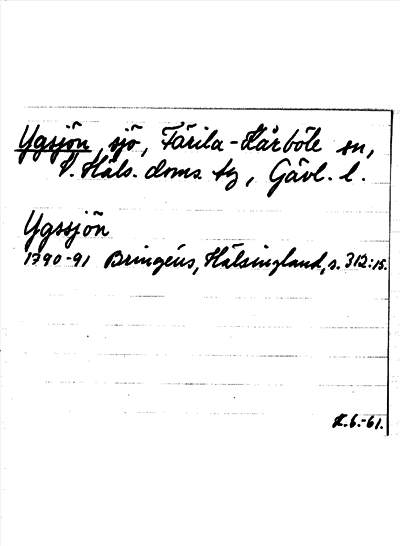 Ygsjön, sjö, Färila-Kårböle sn,
V. Häls. doms. tg, Gävl. l.
Ygssjön
1790-91 Bringéus, Hälsingland, s. 312:15.
K.b.-61.